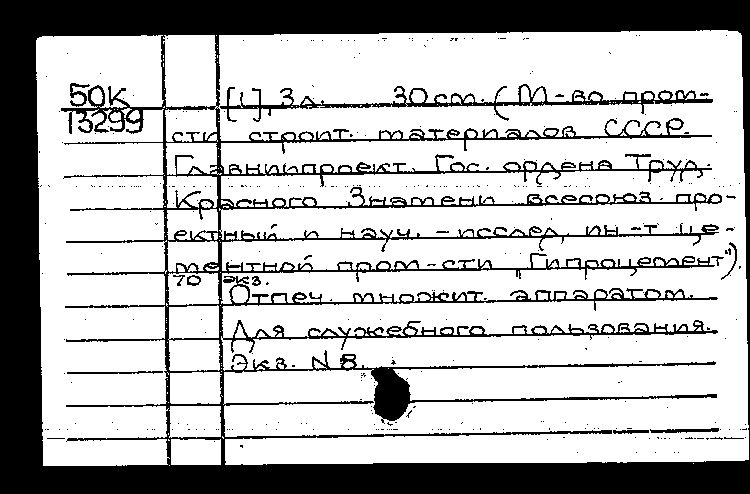 50К [1], 3 л. 30 см. (М-во пром-
13299
сти строит. материалов СССР.
Главниипроект. Гос. ордена Труд.
Красного Знамени всесоюз. про-
ектный и науч. - исслед. ин-т це-
ментной пром-сти „Гипроцемент").
70 экз.
Отпеч. множит. аппаратом.
Для служебного пользования.
Экз. N 8.